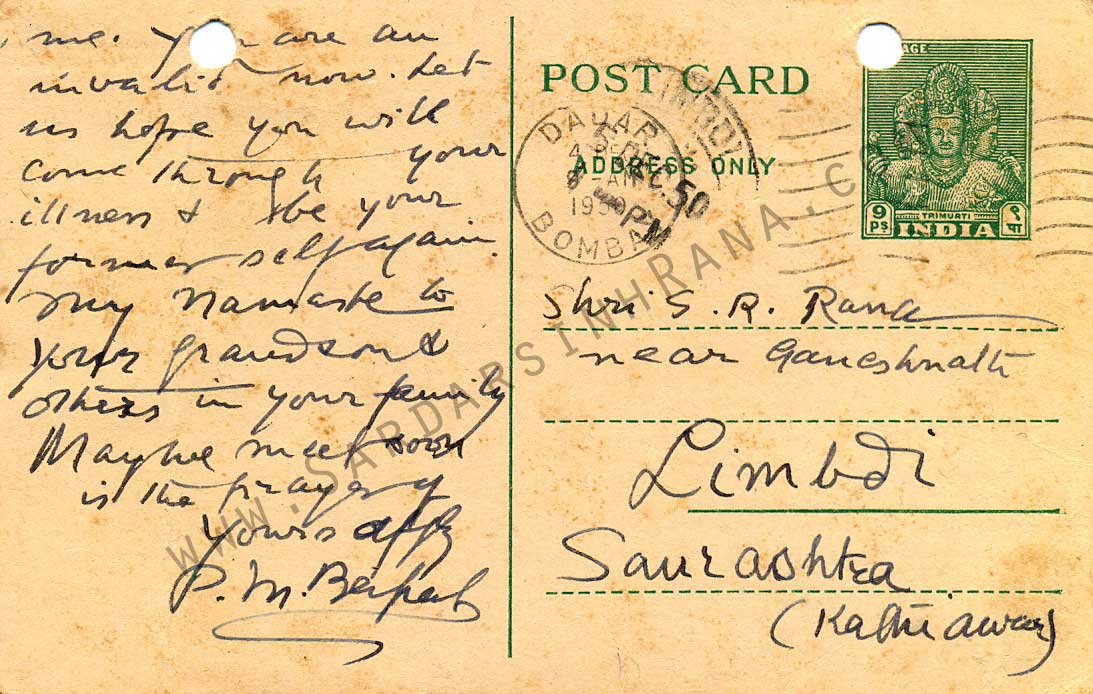 me. You are an
invalid now. Let
us hope you will
come through your
illness & be your
former self again.
My Namaste to
your grandson &
others in your family
May we meet soon
is the prayer of
Yours affly
P. M. Bapat
POST CARD
ADDRESS ONLY
DADAR
1950
BOMBAY
LIMBDI
50
PM
AGE
9 PS
TRIMURTI
INDIA
९ पा
Shri S. R. Rana
near Ganeshnath
Limbdi
Saurashtra
(Kathiawar)
WWW.SARDARSINHRANA.COM